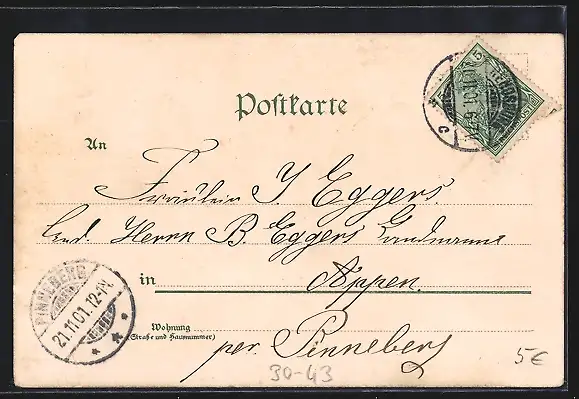 Postkarte
An
Fräulein J Eggers.
bud. Herrn B. Eggers Landmanns
in Appen.
Wohnung
(Straße und Hausnummer)
per. Pinneberg
PINNEBERG
21.11.01.12-1N.
***
5
5€
30-43